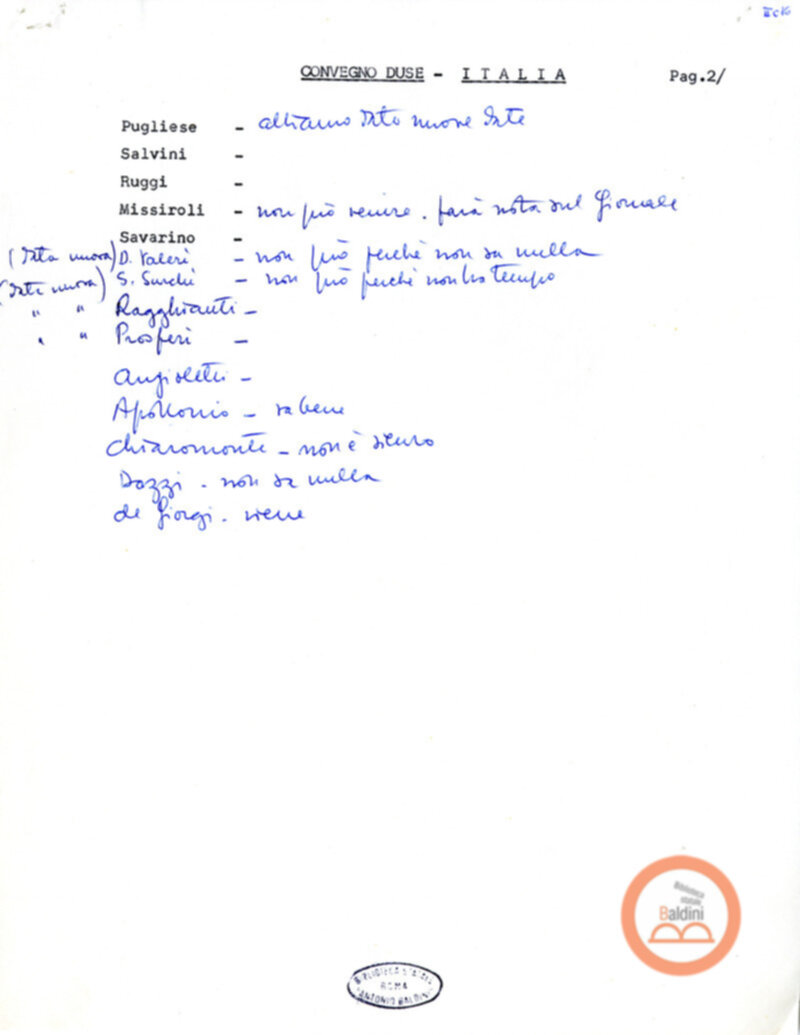 CONVEGNO DUSE - ITALIA Pag.2/
Pugliese - abbiamo dato nuove date
Salvini -
Ruggi -
Missiroli - non può venire. farà nota sul Giornale
Savarino -
(data nuova) D. Valeri - non può perchè non sa nulla
(data nuova) S. Surchi - non può perchè non ha tempo
" " Ragghianti -
" " Prosperi -
Angioletti -
Apollonio - va bene
Chiaromonte - non è sicuro
Dazzi - non sa nulla
de Giorgi - viene
Biblioteca
statale
Baldini
BIBLIOTECA STATALE
ROMA
ANTONIO BALDINI